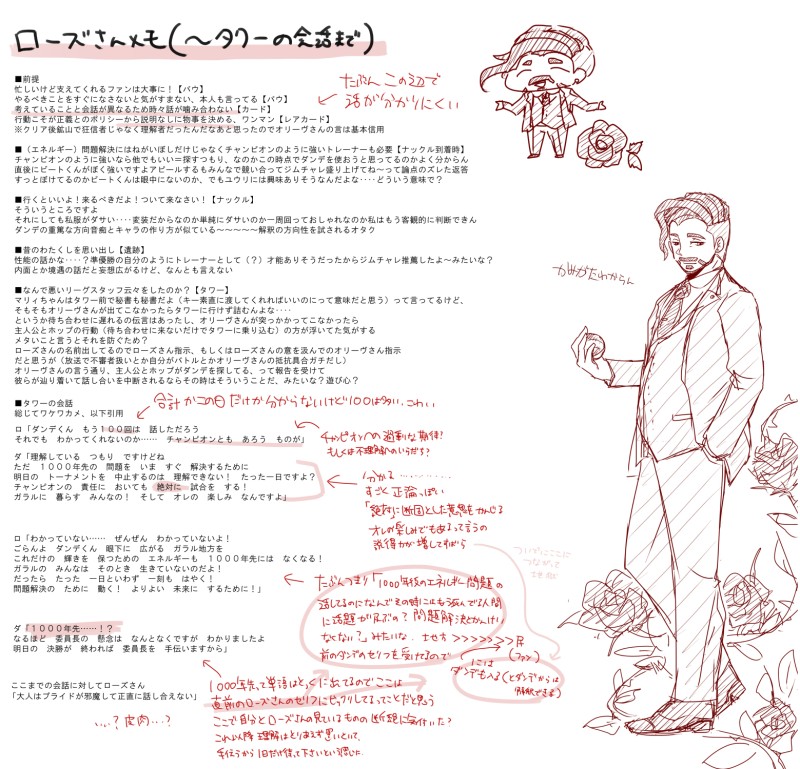 ローズさんメモ(～タワーの会話まで)
■前提
忙しいけど支えてくれるファンは大事に！【バウ】
やるべきことをすぐになさないと気がすまない、本人も言ってる【バウ】
考えていることと会話が異なるため時々話が噛み合わない【カード】
行動こそが正義とのポリシーから説明なしに物事を決める、ワンマン【レアカード】
※クリア後鉱山で狂信者じゃなく理解者だったんだなあと思ったのでオリーヴさんの言は基本信用
たぶんこの辺で
話が分かりにくい
■（エネルギー）問題解決にはねがいぼしだけじゃなくチャンピオンのように強いトレーナーも必要【ナックル到着時】
チャンピオンのように強いなら他でもいい＝探すつもり、なのかこの時点でダンデを使おうと思ってるのかよく分からん
直後にビートくんがぼく強いですよアピールするもみんなで競い合ってジムチャレ盛り上げてね～って論点のズレた返答
すっとぼけてるのかビートくんは眼中にないのか、でもユウリには興味ありそうなんだよな‥‥どういう意味で？
■行くといいよ！来るべきだよ！ついて来なさい！【ナックル】
そういうところですよ
それにしても私服がダサい‥‥変装だからなのか単純にダサいのか一周回っておしゃれなのか私はもう客観的に判断できん
ダンデの重篤な方向音痴とキャラの作り方が似ている～～～～～解釈の方向性を試されるオタク
■昔のわたくしを思い出し【遺跡】
性能の話かな‥‥？準優勝の自分のようにトレーナーとして（？）才能ありそうだったからジムチャレ推薦したよ～みたいな？
内面とか境遇の話だと妄想広がるけど、なんとも言えない
かみがたわからん
■なんで悪いリーグスタッフ云々をしたのか？【タワー】
マリィちゃんはタワー前で秘書も秘書だよ（キー素直に渡してくれればいいのにって意味だと思う）って言ってるけど、
そもそもオリーヴさんが出てこなかったらタワーに行けず詰むんよな‥‥
というか待ち合わせに遅れるの伝言はあったし、オリーヴさんが突っかかってこなかったら
主人公とホップの行動（待ち合わせに来ないだけでタワーに乗り込む）の方が浮いてた気がする
メタいこと言うとそれを防ぐため？
ローズさんの名前出してるのでローズさん指示、もしくはローズさんの意を汲んでのオリーヴさん指示
だと思うが（放送で不審者扱いとか自分がバトルとかオリーヴさんの抵抗具合ガチだし）
オリーヴさんの言う通り、主人公とホップがダンデを探してる、って報告を受けて
彼らが辿り着いて話し合いを中断されるならその時はそういうことだ、みたいな？遊び心？
■タワーの会話
総じてワケワカメ、以下引用
合計かこの日だけか分からないけど100はタタい、こわい
ロ「ダンデくん　もう１００回は　話しただろう
それでも　わかってくれないのか……　チャンピオンとも　あろう　ものが」
チャンピオンへの過剰な期待?
もしくは不理解へのいらだち?
ダ「理解している　つもり　ですけどね
ただ　１０００年先の　問題を　いま　すぐ　解決するために
明日の　トーナメントを　中止するのは　理解できない！　たった一日ですよ？
チャンピオンの　責任に　おいても　絶対に　試合を　する！
ガラルに　暮らす　みんなの！　そして　オレの　楽しみ　なんですよ」
分かる……
すごく正論っぽい
「絶対」に断固とした意思をかんじる
オレの楽しみでもあるって言うの
説得力が増してすばら
ロ「わかっていない……　ぜんぜん　わかっていないよ！
ごらんよ　ダンデくん　眼下に　広がる　ガラル地方を
これだけの　輝きを　保つための　エネルギーも　１０００年先には　なくなる！
ガラルの　みんなは　そのとき　生きていないのだよ！
だったら　たった　一日といわず　一刻も　はやく！
問題解決の　ために　動く！　よりよい　未来に　するために！」
たぶんつまり「1000年後のエネルギー問題の
話してるのになんでその時にはもう死んでる人間
に話題が及ぶの? 問題解決とかんけい
なくない?」みたいな
前のダンデのセリフを受けてるので
(ファン)
には
ダンデもいる(とダンデからは
解釈できる)
ダ「１０００年先……！？
なるほど　委員長の　懸念は　なんとなくですが　わかりましたよ
明日の　決勝が　終われば　委員長を　手伝いますから」
1000年先、って単語はとっくに出てるのでここは
直前のローズさんのセリフにビックリしてるってことだと思う
ここで自分とローズさんの見ているものの断絶に気付いた?
これ以降理解はとりあえず置いといて、
手伝うから1日だけ待って下さいという譲歩に
ここまでの会話に対してローズさん
「大人はプライドが邪魔して正直に話し合えない」
…?皮肉…?